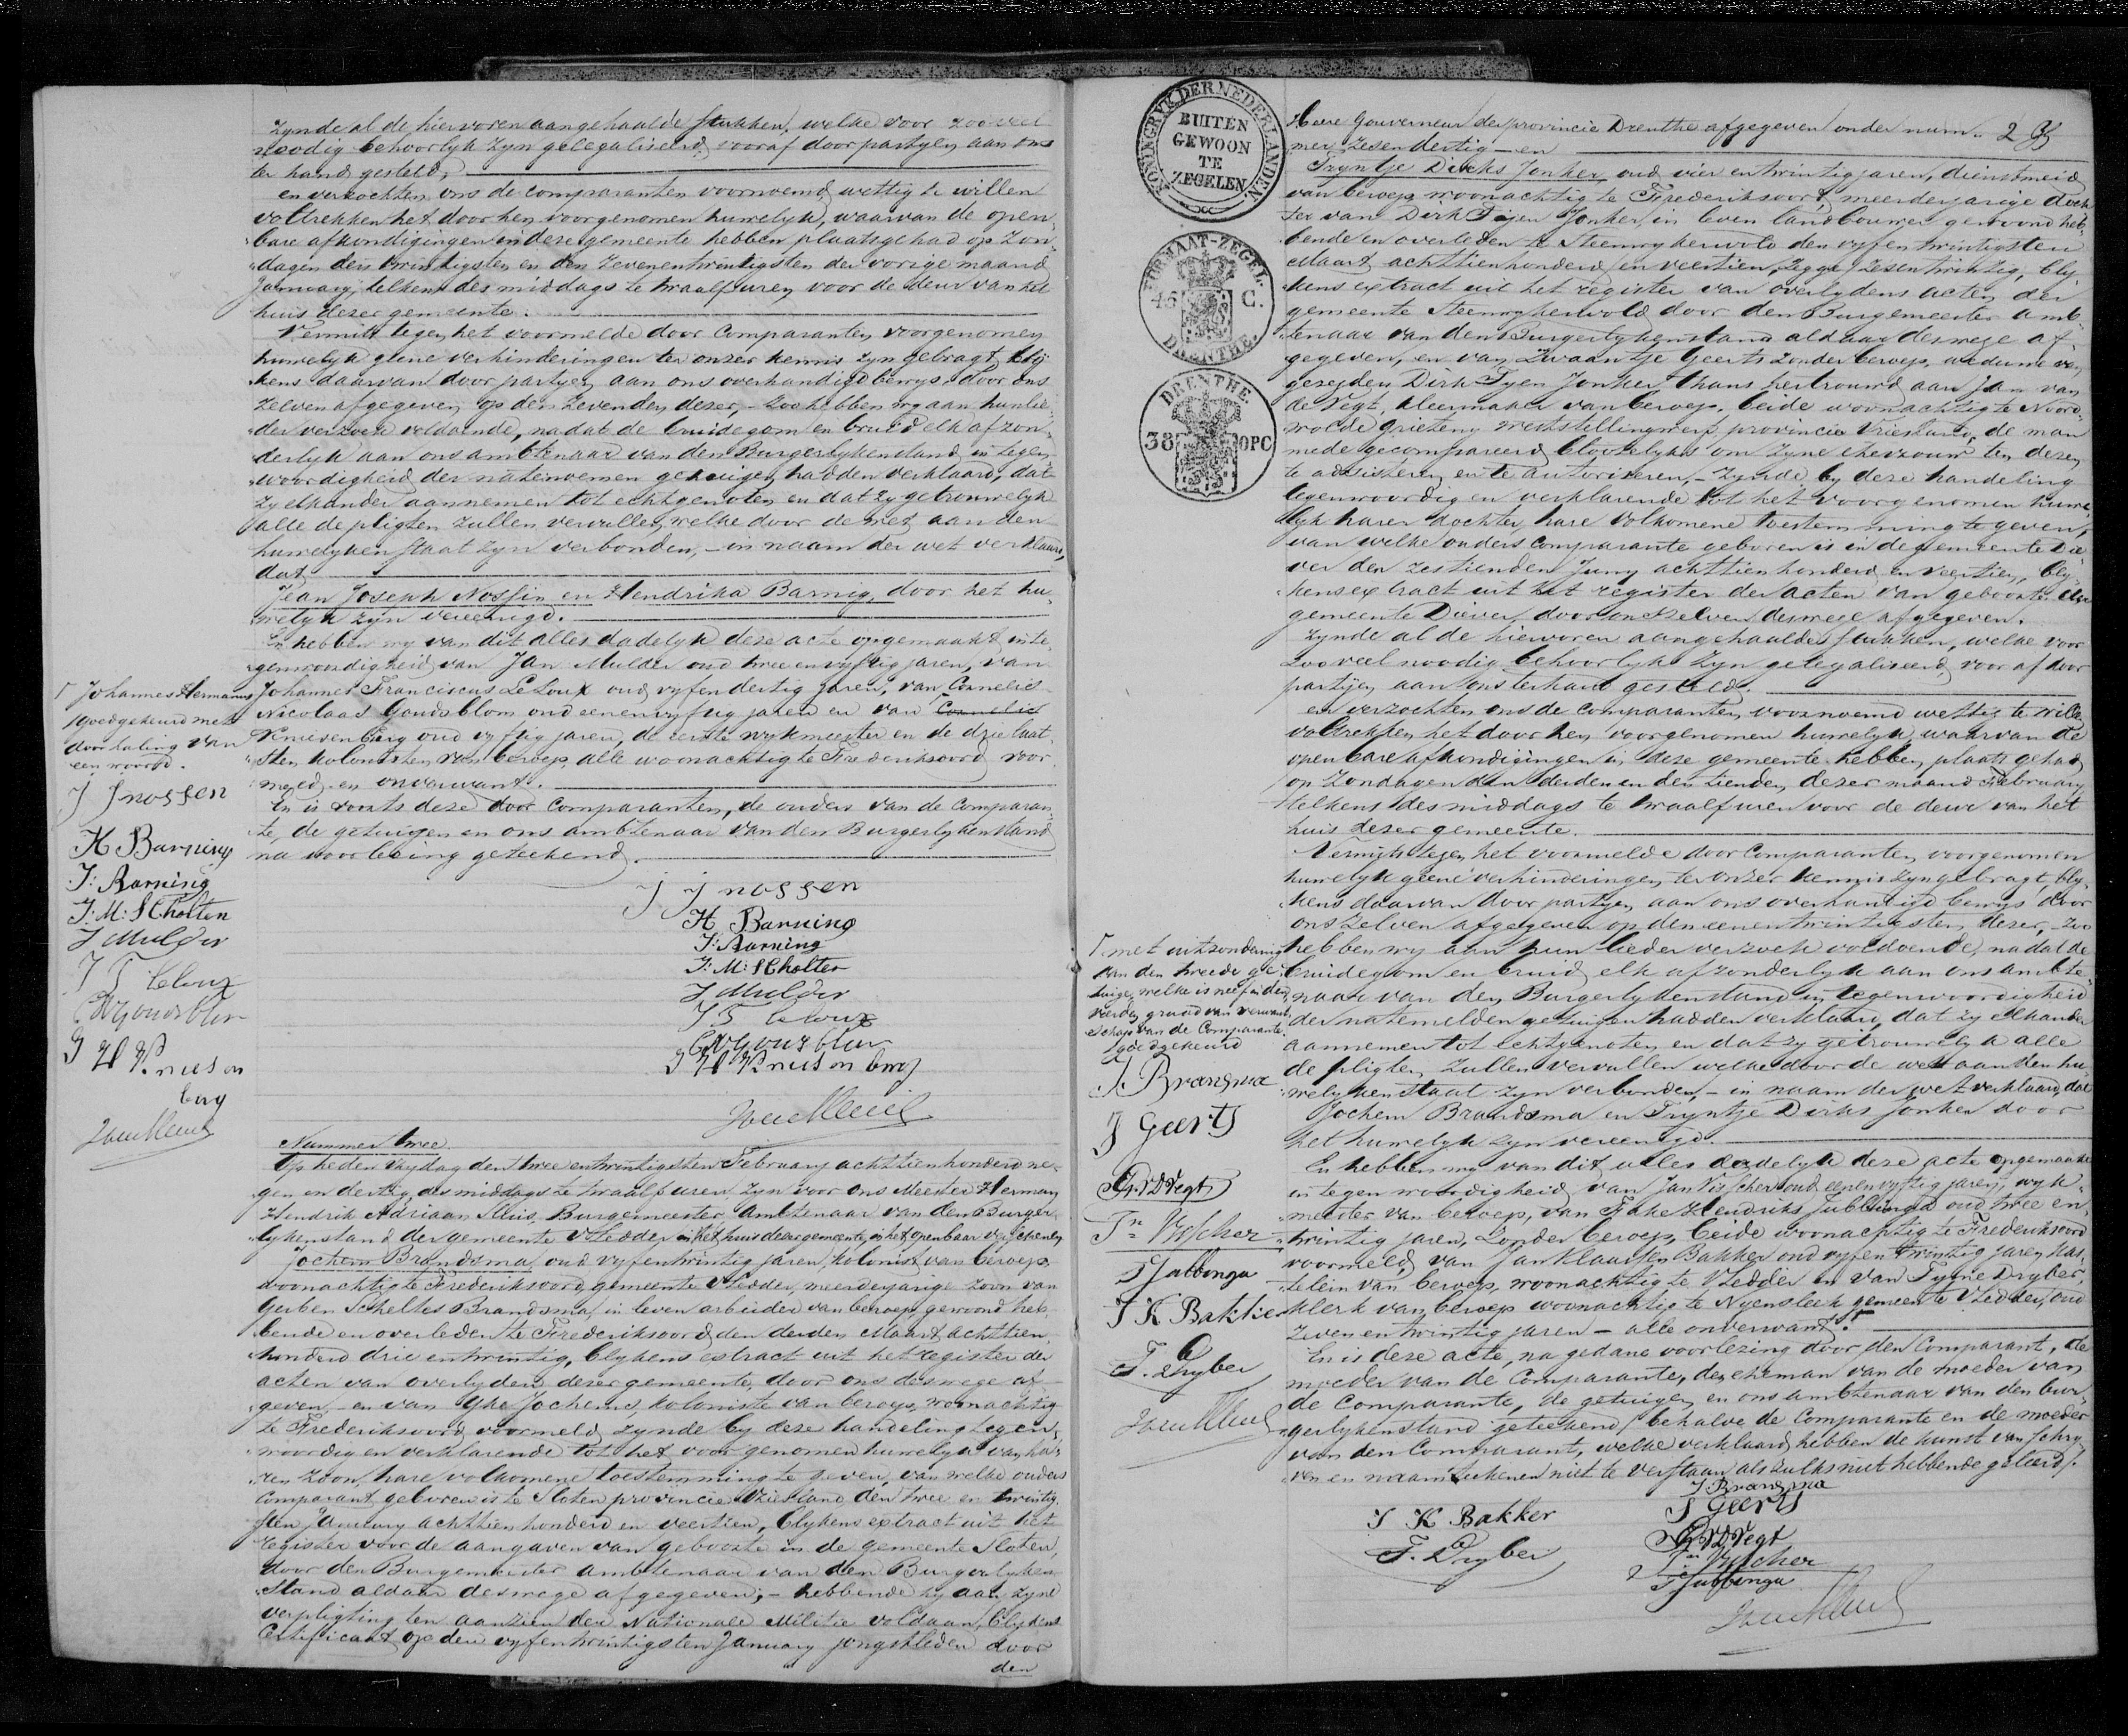 zynde al de hiervoren aangehaalde stukken, welke voor zoo veel
noodig behoorlyk zyn gelegaliseerd, vooraf door partyen aan ons
ter hand gesteld,
en verzochten ons de comparanten voornoemd, wettig te willen
voltrekken het door hen voorgenomen huwelyk, waarvan de open-
bare afkondigingen in deze gemeente hebben plaats gehad op Zon-
dagen den twintigsten en den zevenentwintigsten der vorige maand
January, telkens des middags te twaalf uren voor de deur van het
huis dezer gemeente.
Vermits tegen het voormelde door Comparanten voorgenomen
huwelyk geene verhinderingen ter onzer kennis zyn gebragt, bly-
kens daarvan door partyen aan ons overhandigd bewys door ons
zelven afgegeven op den zevenden dezer, - zoo hebben wy aan hunlie-
der verzoek voldoende, nadat de bruidegom en bruid elk afzon-
derlyk aan ons ambtenaar van den Burgerlykenstand, in tegen-
woordigheid der natenoemen getuigen hadden verklaard, dat
zy elkander aannemen tot echtgenoten en dat zy getrouwelyk
alle de pligten zullen vervullen, welke door de wet aan den
huwelyken staat zyn verbonden, - in naam der wet verklaard,
dat
Jean Joseph Nossin en Hendrika Barnig, door het hu-
welyk zyn vereenigd.
En hebben wy van dit alles dadelyk deze acte opgemaakt in te-
genwoordigheid van Jan Mulder oud twee en vyftig jaren, van
Johannes Franciscus LeLoux oud vyfendertig jaren, van Cornelis
Nicolaas Goudsblom oud eenenvyftig jaren en van Cornelis
Knuivenberg oud vyftig jaren, de eerste wykmeester en de drie laat-
sten kolonisten van beroep, alle woonachtig te Frederiksoord voor-
meld en onverwant.
En is voorts deze door Comparanten, de ouders van de Comparan-
te, de getuigen en ons ambtenaar van den Burgerlykenstand
na voorlezing geteekend.
Johannes Hermanus
goedgekeurd met
doorhaling van
een woord.
J J nossen
H Barning
J: Barning
J: M: SCholten
J Mulder
J F leloux
CN goudsblom
J H Knuson
berg
J J nossen
H Barning
J: Barning
J: M: SCholten
J Mulder
J F leloux
CN goudsblom
J H Knuson berg
Nummer twee
Op heden Vrydag den twee entwintigsten February achttienhonderd ne-
gen en dertig, des middags te twaalf uren, zyn voor ons Meester Herman
Hendrik Adriaan Sluis, Burgemeester Ambtenaar van den Burger-
lykenstand der gemeente Vledder in het huis dezer gemeente, in het openbaar verschenen
Jochem Brandsma, oud vyfentwintig jaren, kolonist van beroep,
woonachtig te Frederiksoord, gemeente Vledder, meerderjarige zoon van
Gerben Scheltes Brandsma, in leven arbeider van beroep, gewoond heb-
bende en overleden te Frederiksoord den derden Maart achttien
honderd drie entwintig, blykens extract uit het register der
acten van overlyden dezer gemeente, door ons deswege af-
geven, - en van Yke Jochems, koloniste van beroep, woonachtig
te Frederiksoord, voormeld, zynde by deze handeling tegen-
woordig en verklarende tot het voorgenomen huwelyk van ha-
ren zoon, hare volkomene toestemming te geven, van welke ouders
Comparant geboren is te Sloten provincie Vriesland, den twee en twintig-
sten January achttien honderd en veertien, blykens extract uit het
register voor de aangaven van geboorte in de gemeente Sloten,
door den Burgemeester ambtenaar van den Burgerlyken
stand aldaar deswege afgegeven; - hebbende hy aan zyne
verpligting ten aanzien der Nationale Militie voldaan, blykens
Certificaat op den vyfentwintigsten January jongstleden door
den
KONINGRYK DER NEDERLANDEN.
BUITEN
GEWOON
TE
ZEGELEN.
FORMAAT-ZEGEL.
45 C.
DRENTHE.
DRENTHE.
38 OPC
Heere Gouverneur der provincie Drenthe afgegeven onder num-
mer zesendertig - en
Tryntje Dirks Jonker, oud vier entwintig jaren, dienstmeid
van beroep, woonachtig te Frederiksoord, meerderjarige doch-
ter van Dirk Tyen Jonker, in leven landbouwer, gewoond heb-
bende en overleden te Steenwykerwold den vyfentwintigsten
Maart achttienhonderd en veertien, zegge zesentwintig, bly-
kens extract uit het register van overlydens acten der
gemeente Steenwykerwold door den Burgemeester amb-
tenaar van den Burgerlykenstand aldaar deswege af-
gegeven, en van Zwaantje Geerts zonder beroep, weduwe van
gezegden Dirk Tyen Jonker, thans hertrouwd aan Jan van
de Vegt, kleermaker van beroep, beide woonachtig te Noord-
wolde grieteny Weststellingwerf provincie Vriesland, de man
mede gecompareerd blootelyk om zyne ehevrouw ten dezen
te adsisteren en te autoriseren, - zynde by deze handeling
tegenwoordig en verklarende tot het voorgenomen huwe-
lyk harer dochter, hare volkomene toestemming te geven,
van welke ouders comparante geboren is in de gemeente Die-
ver den zestienden Juny achttienhonderd en veertien, bly-
kens extract uit het register der acten van geboorte der
gemeente Diever, door onszelven deswege afgegeven.
zynde al de hiervoren aangehaalde stukken, welke voor
zoo veel noodig, behoorlyk zyn gelegaliseerd, vooraf door
partijen aan ons ter hand gesteld.
en verzochten ons de comparanten voornoemd wettig te willen
voltrekken het door hen voorgenomen huwelyk, waarvan de
openbare afkondigingen in deze gemeente hebben plaats gehad
op Zondagen den derden en den tienden dezer maand February
telkens des middags te twaalf uren voor de deur van het
huis dezer gemeente.
Vermits tegen het voormelde door Comparanten voorgenomen
huwelyk geene verhinderingen ter onzer kennis zyn gebragt, bly-
kens daarvan door partyen aan ons overhandigd bewys door
ons zelven afgegeven op den eenentwintigsten dezer, - zoo
hebben wy aan hun lieder verzoek voldoende, nadat de
bruidegom en bruid elk afzonderlyk aan ons ambte-
naar van den Burgerlykenstand in tegenwoordigheid
der natemelden getuigen hadden verklaard, dat zy elkander
aannemen tot echtgenoten en dat zy getrouwelyk alle
de pligten zullen vervullen welke door de wet aan den hu-
welyken staat zyn verbonden, - in naam der wet verklaard, dat
Jochem Brandsma en Tryntje Dirks Jonker door
het huwelyk zyn vereenigd.
En hebben wy van dit alles dadelyk deze acte opgemaakt
in tegenwoordigheid van Jan Visscher oud eenenvyftig jaren, wyk-
meester van beroep, van Foke Hendriks Jubbinga oud twee en-
twintig jaren, zonder beroep, beide woonachtig te Frederiksoord
voormeld, van Jan Klaassen Bakker oud vyfentwintig jaren, kas-
telein van beroep, woonachtig te Vledder en van Tymen Dryber,
klerk van beroep woonachtig te Nyensleek gemeente Vledder, oud
zeven entwintig jaren - alle onverwant.
En is deze acte, na gedane voorlezing door den Comparant, de
moeder van de Comparante, den eheman van de moeder van
de Comparante, de getuigen en ons ambtenaar van den bur-
gerlykenstand geteekend, behalve de Comparante en de moeder
van den Comparant, welke verklaard hebben de kunst van schry-
ven en naamteekenen niet te verstaan als zulks niet hebbende geleerd.
met uitzondering
van den tweede ge-
tuige, welke is neef in den
vierden graad van verwant-
schap van de Comparante.
goedgekeurd
J. Brandsma
J Geerts
J. VD Vegt
Jn Visscher
F Jubbinga
J K Bakker
T. Dryber
J. Brandsma
J Geerts
J. VD Vegt
Jn Visscher
F Jubbinga
J K Bakker
T. Dryber